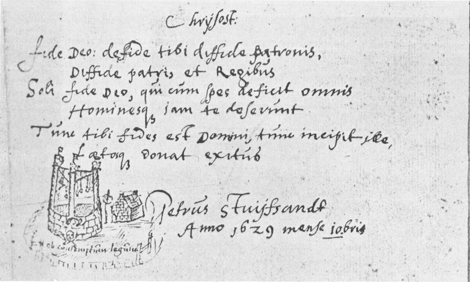 Chrysost:
fide Deo: defide tibi diffide patronis,
Diffide patris et Regibus
Soli fide Deo, qui cum spes deficit omnis
Hominesq iam te deserunt
Tunc tibi fides est Domini, tunc incipit ille,
Lætosq donat exitus
Petrus
Anno 1629 mense 10bris